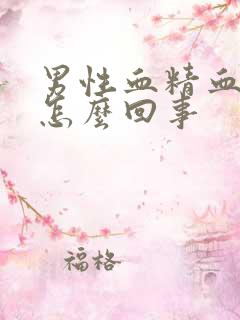 男性血精血
怎麼回事
福格